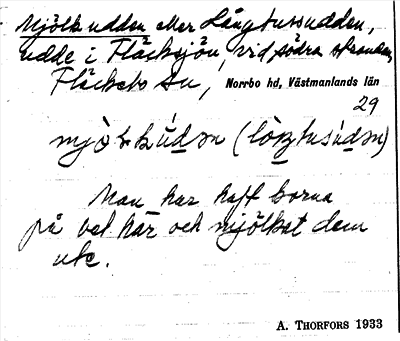 Mjölkudden eller Långtussudden,
udde i Fläcksjön, vid södra stranden,
Fläckebo sn, Norrbo hd, Västmanlands län
29
Man har haft korna
på val här och mjölkat dem
ute.
A. THORFORS 1933